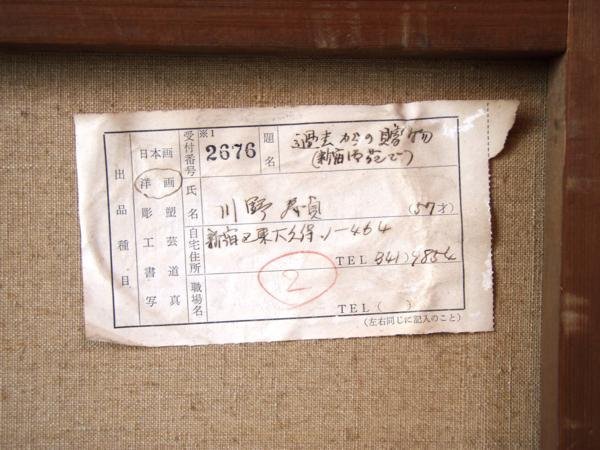 出品種目
日本画
洋画
彫塑
工芸
書道
写真
受付番号
※1
2676
題名
過去からの贈物
(新宿御苑で)
氏名
川野 貞
(57才)
自宅住所
新宿区東大久保 1-464
TEL 341) 9854
職場名
2
TEL( )
(左右同じに記入のこと)